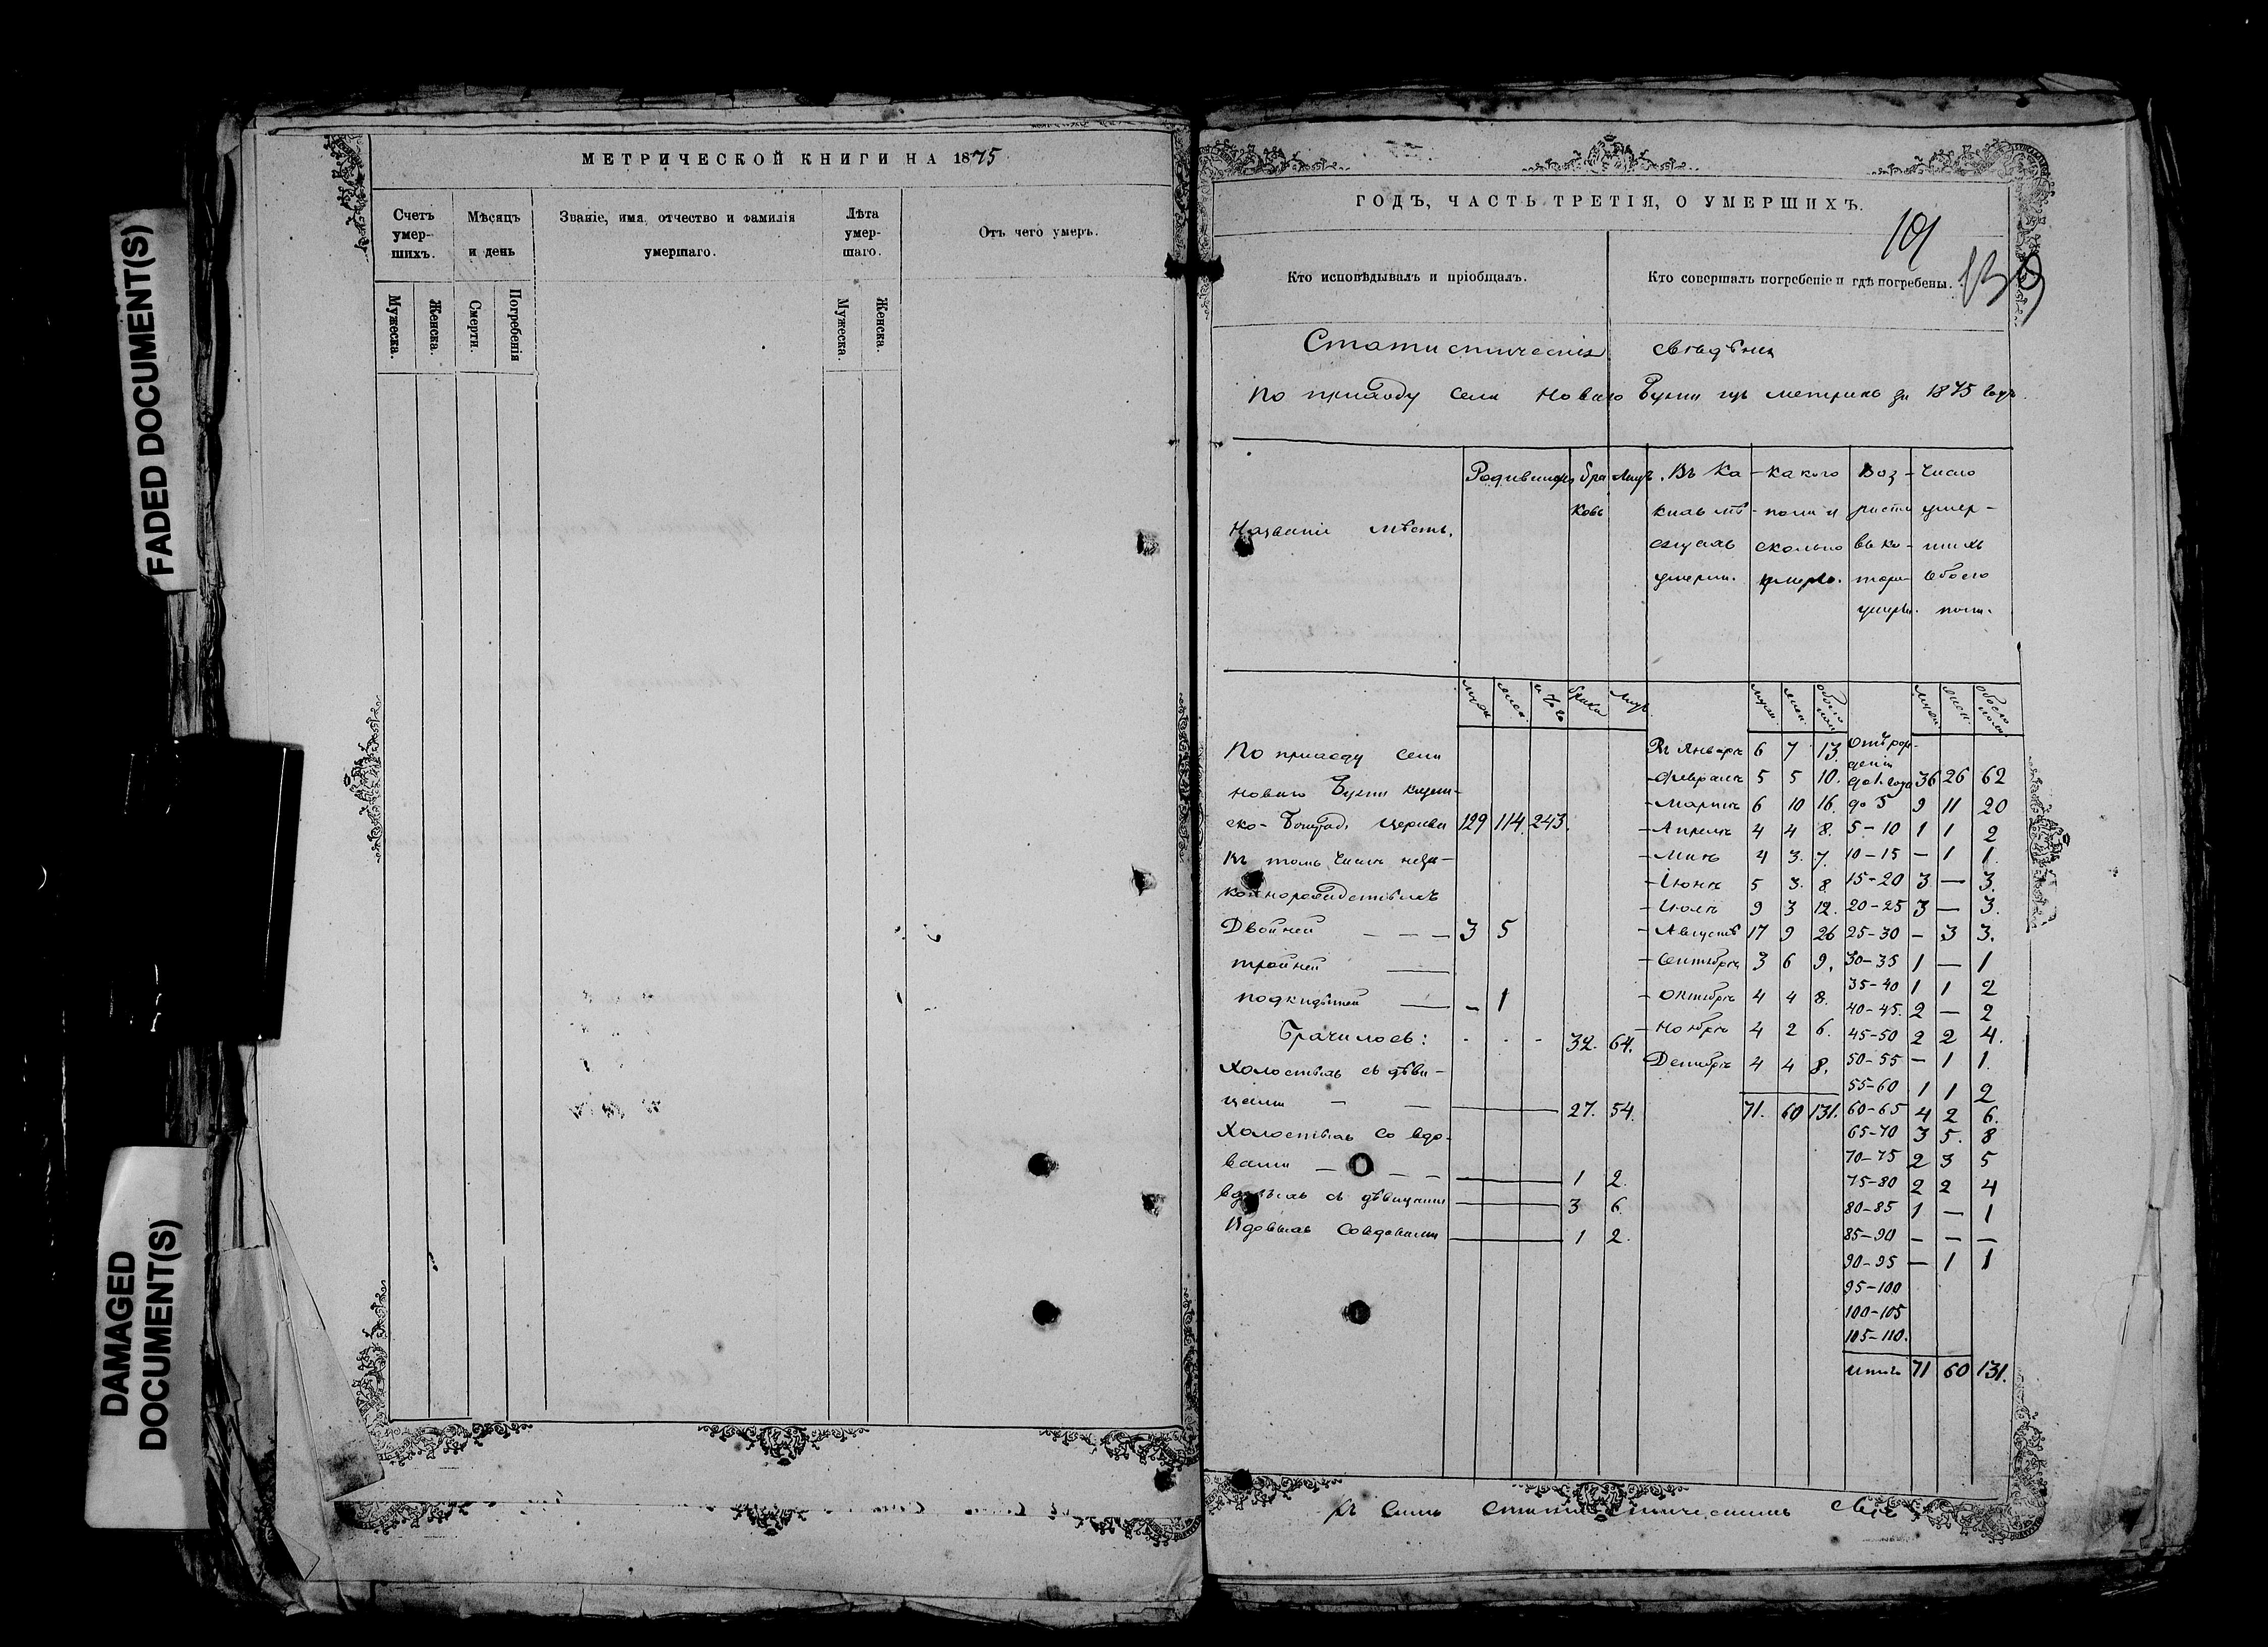 FADED DOCUMENT(S)
DAMAGED
DOCUMENT(S)
МЕТРИЧЕСКОЙ КНИГИ НА 1875
Счетъ умер-шихъ.
Мѣсяцъ и день
Званіе, имя, отчество и фамилія умершаго.
Лѣта умер-шаго.
Отъ чего умеръ.
Мужеска.
Женска.
Смерти.
Погребенія
Мужеска.
Женска.
ГОДЪ, ЧАСТЬ ТРЕТІЯ, О УМЕРШИХЪ.
101
139
Кто исповѣдывалъ и пріобщалъ.
Кто совершалъ погребеніе и гдѣ погребены.
Статистическія свѣдѣнія
По приходу села Новаго метрикъ за 1875 годъ.
Названіе мѣстъ.
Родившихся
бра ковъ
лицъ.
Въ ка кихъ мѣ сяцахъ умерли.
какого пола и сколько умерло.
Воз раста въ ко торы умерли.
Число умер шихъ обоего пола.
муж. жен. итого брака лицъ муж. жен. обоего пола муж. жен. обоего пола
По приходу села
Новаго
церкви 129 114. 243.
Въ томъ числѣ неза-
коннорожденныхъ
Двойней — — — 3 5
тройней —
подкидышей — — 1
Брачилось: - - - 32. 64.
Холостыхъ съ дѣви-
цами — — 27. 54.
Холостыхъ со вдо-
вами — — — 1 2.
вдовыхъ съ дѣвицами 3 6
Вдовыхъ со вдовами 1 2.
Въ Январѣ 6 7 13.
- Февралѣ 5 5 10.
- Мартѣ 6 10 16.
- Апрелѣ 4 4 8.
- Маѣ 4 3. 7.
- Іюнѣ 5 3. 8
- Іюлѣ 9 3 12.
- Августѣ 17 9 26
- Сентябрѣ 3 6 9.
- Октябрѣ 4 4 8.
- Ноябрѣ 4 2 6.
Декабрѣ 4 4 8.
71. 60 131.
Отъ рож-
денія
до 1. года 36 26 62
до 5 9 11 20
5-10 1 1 2
10-15 — 1 1.
15-20 3 — 3.
20-25 3 — 3.
25-30 - 3 3.
30-35 1 — 1
35-40 1 1 2
40-45. 2 — 2
45-50 2 2 4.
50-55 — 1 1.
55-60 1 1 2
60-65 4 2 6.
65-70 3 5. 8
70-75 2 3 5
75-80 2 2 4
80-85 1 — 1
85-90 — — —
90-95 — 1 1
95-100
100-105
105-110.
итого 71 60 131.
Къ симъ статистическимъ